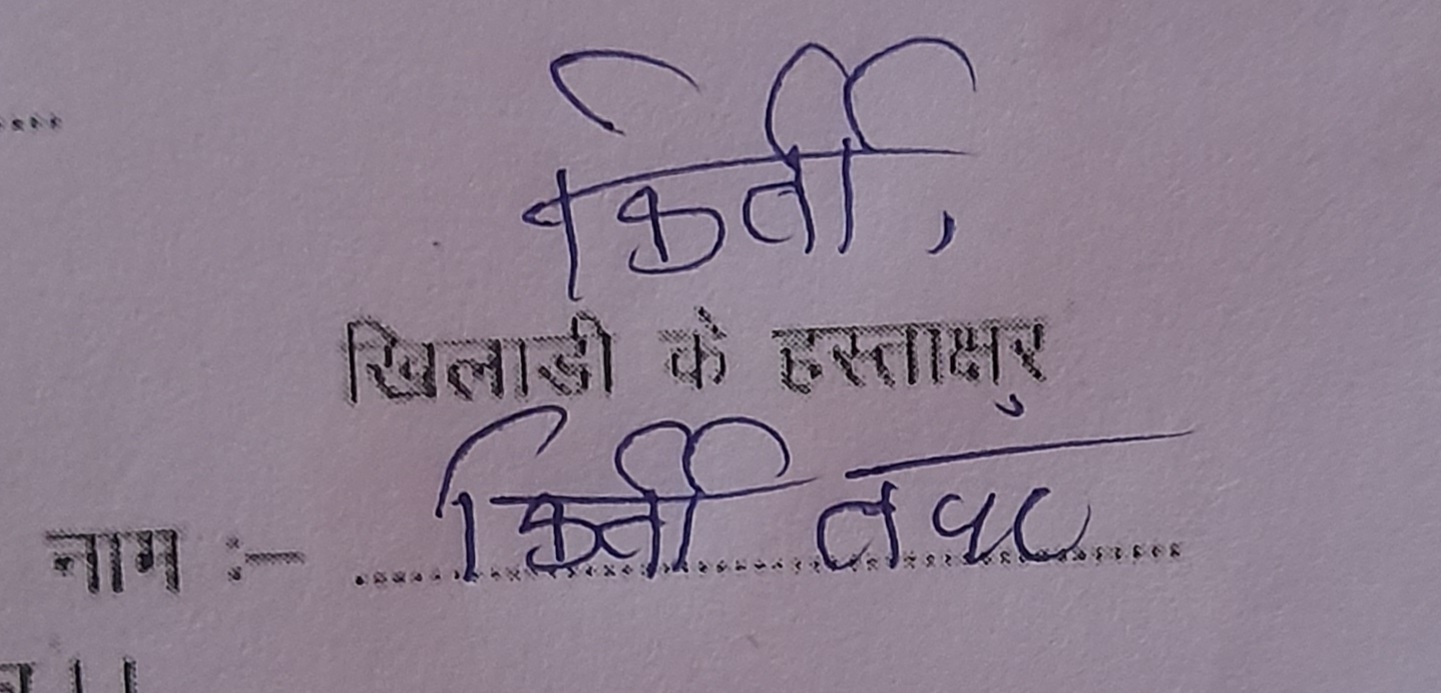 किर्ती,
खिलाडी के हस्ताक्षर
नाम :- किर्ती